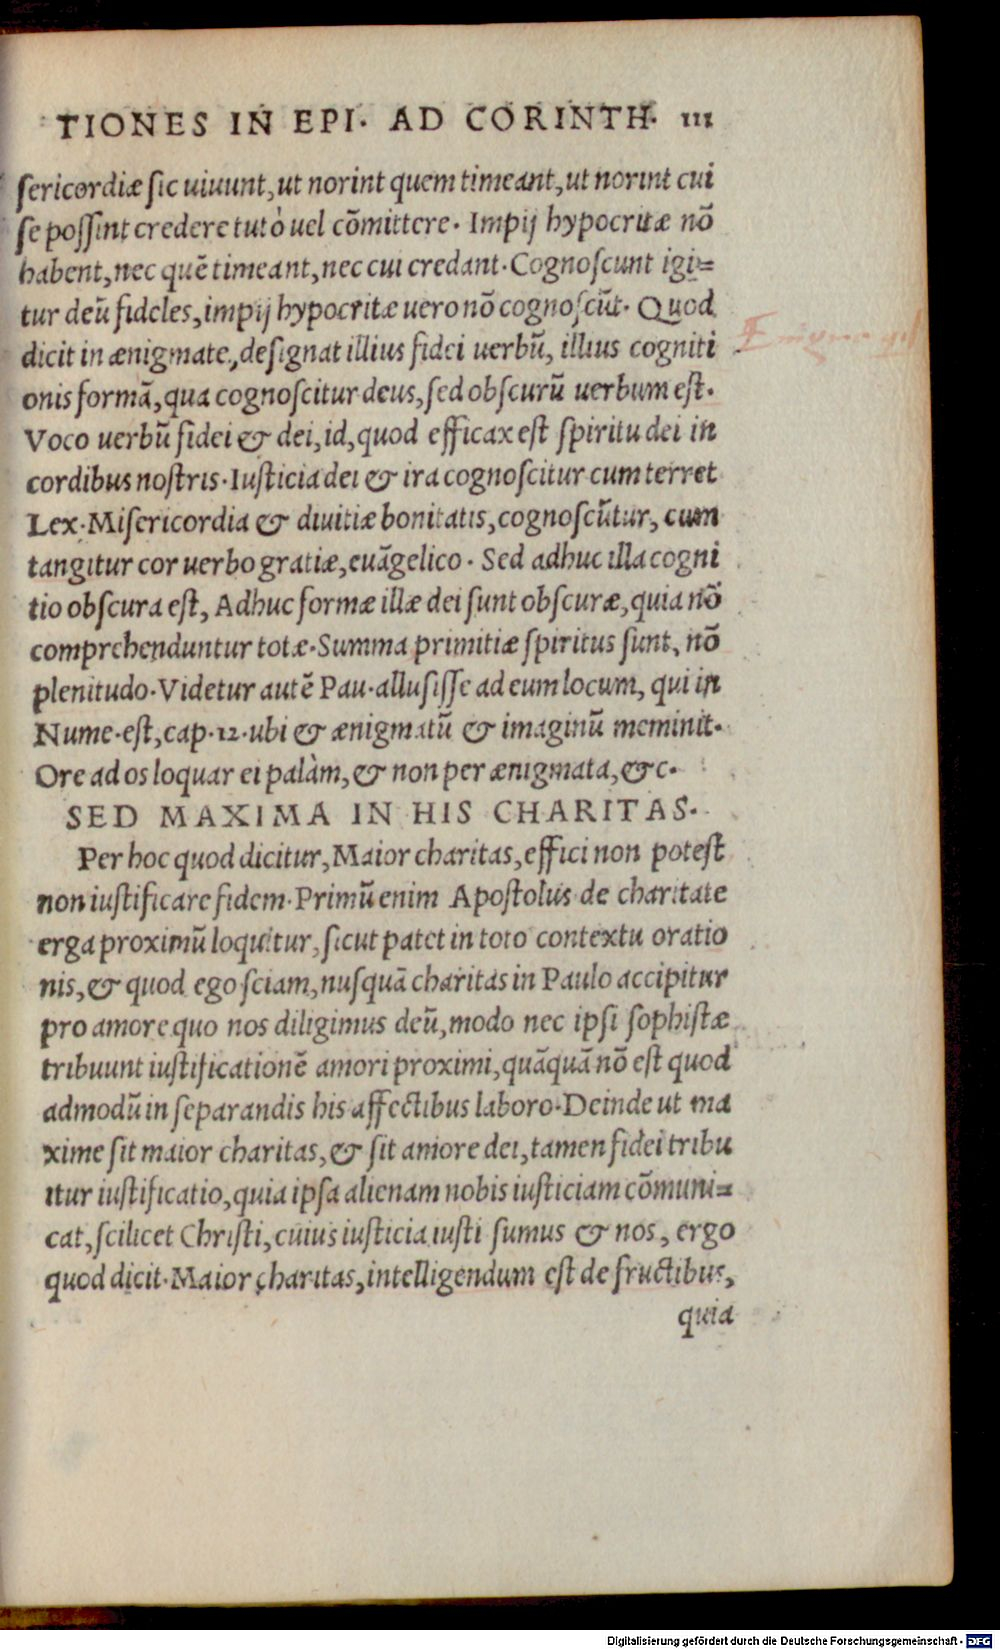 TIONES IN EPI. AD CORINTH. 111
sericordiæ sic uiuunt, ut norint quem timeant, ut norint cui
se possint credere tutò uel cõmittere. Impij hypocritæ nõ
habent, nec quẽ timeant, nec cui credant. Cognoscunt igi=
tur deũ fideles, impij hypocritæ uero nõ cognoscũt. Quod
dicit in ænigmate, designat illius fidei uerbũ, illius cogniti
onis formã, qua cognoscitur deus, sed obscurũ uerbum est.
Voco uerbũ fidei & dei, id, quod efficax est spiritu dei in
cordibus nostris. Iusticia dei & ira cognoscitur cum terret
Lex. Misericordia & diuitiæ bonitatis, cognoscũtur, cum
tangitur cor uerbo gratiæ, euãgelico. Sed adhuc illa cogni
tio obscura est, Adhuc formæ illæ dei sunt obscuræ, quia nõ
comprehenduntur totæ. Summa primitiæ spiritus sunt, nõ
plenitudo. Videtur autẽ Pau. allusisse ad eum locum, qui in
Nume. est, cap. 12. ubi & ænigmatũ & imaginũ meminit.
Ore ad os loquar ei palàm, & non per ænigmata, &c.
SED MAXIMA IN HIS CHARITAS.
Per hoc quod dicitur, Maior charitas, effici non potest
non iustificare fidem. Primũ enim Apostolus de charitate
erga proximũ loquitur, sicut patet in toto contextu oratio
nis, & quod ego sciam, nusquã charitas in Paulo accipitur
pro amore quo nos diligimus deũ, modo nec ipsi sophistæ
tribuunt iustificationẽ amori proximi, quãquã nõ est quod
admodũ in separandis his affectibus laboro. Deinde ut ma
xime sit maior charitas, & sit amore dei, tamen fidei tribu
itur iustificatio, quia ipsa alienam nobis iusticiam cõmuni=
cat, scilicet Christi, cuius iusticia iusti sumus & nos, ergo
quod dicit. Maior charitas, intelligendum est de fructibus,
quia
Digitalisierung gefördert durch die Deutsche Forschungsgemeinschaft - DFG